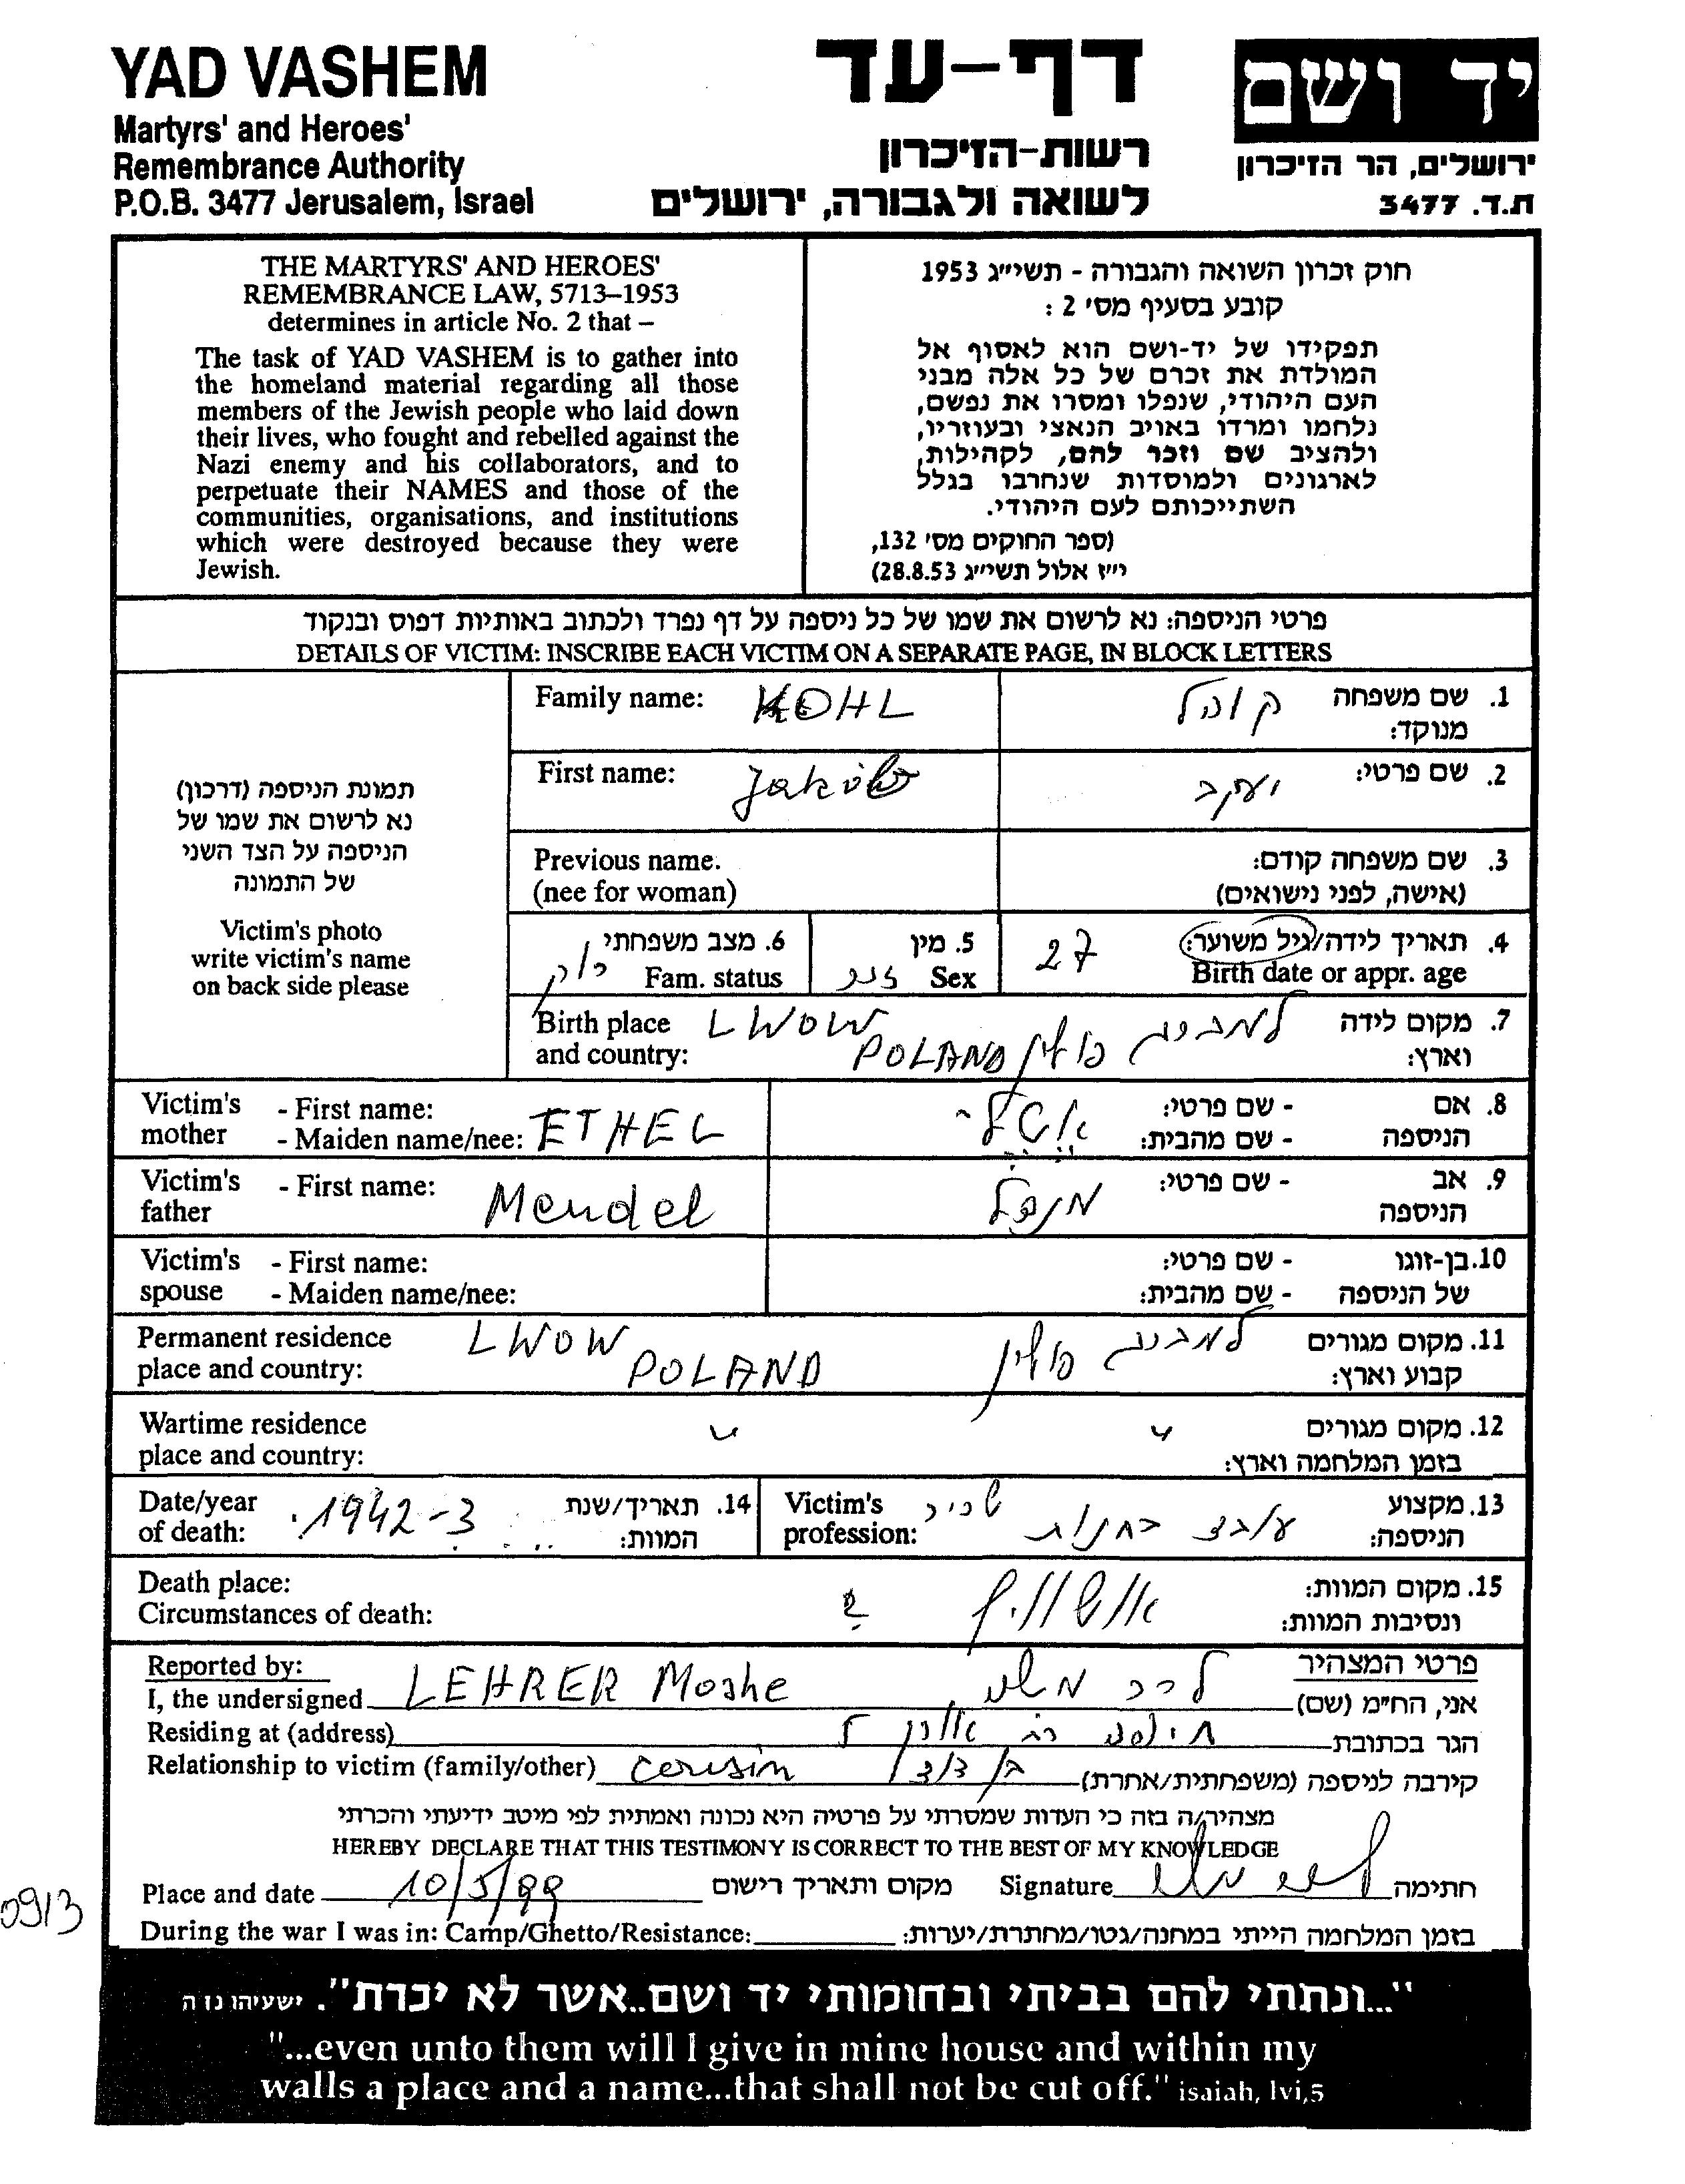 YAD VASHEM
Martyrs' and Heroes'
Remembrance Authority
P.O.B. 3477 Jerusalem, Israel
דף-עד
רשות-הזיכרון
לשואה ולגבורה, ירושלים
יד ושם
ירושלים, הר הזיכרון
ת.ד. 3477
THE MARTYRS' AND HEROES'
REMEMBRANCE LAW, 5713–1953
determines in article No. 2 that –
The task of YAD VASHEM is to gather into
the homeland material regarding all those
members of the Jewish people who laid down
their lives, who fought and rebelled against the
Nazi enemy and his collaborators, and to
perpetuate their NAMES and those of the
communities, organisations, and institutions
which were destroyed because they were
Jewish.
חוק זכרון השואה והגבורה - תשי״ג 1953
קובע בסעיף מס׳ 2 :
תפקידו של יד-ושם הוא לאסוף אל
המולדת את זכרם של כל אלה מבני
העם היהודי, שנפלו ומסרו את נפשם,
נלחמו ומרדו באויב הנאצי ובעוזריו,
ולהציב שם וזכר להם, לקהילות,
לארגונים ולמוסדות שנחרבו בגלל
השתייכותם לעם היהודי.
(ספר החוקים מס׳ 132,
י״ז אלול תשי״ג 28.8.53)
פרטי הניספה: נא לרשום את שמו של כל ניספה על דף נפרד ולכתוב באותיות דפוס ובנקוד
DETAILS OF VICTIM: INSCRIBE EACH VICTIM ON A SEPARATE PAGE, IN BLOCK LETTERS
תמונת הניספה (דרכון)
נא לרשום את שמו של
הניספה על הצד השני
של התמונה
Victim's photo
write victim's name
on back side please
Family name: KOHL קוהל 1. שם משפחה
מנוקד:
First name: Jakob יעקב 2. שם פרטי:
Previous name. 3. שם משפחה קודם:
(nee for woman) (אישה, לפני נישואים)
6. מצב משפחתי רווק 5. מין זכר 27 4. תאריך לידה/גיל משוער:
Fam. status Sex Birth date or appr. age
Birth place LWOW למברג 7. מקום לידה
and country: POLAND פולין וארץ:
Victim's - First name: - שם פרטי: 8. אם
mother - Maiden name/nee: ETHEL אטל - שם מהבית: הניספה
Victim's - First name: Mendel מנדל - שם פרטי: 9. אב
father הניספה
Victim's - First name: - שם פרטי: 10. בן-זוגו
spouse - Maiden name/nee: - שם מהבית: של הניספה
Permanent residence LWOW למברג 11. מקום מגורים
place and country: POLAND פולין קבוע וארץ:
Wartime residence 〃 〃 12. מקום מגורים
place and country: בזמן המלחמה וארץ:
Date/year 1942-3 14. תאריך/שנת Victim's שכיר עובד בחנות 13. מקצוע
of death: המוות: profession: הניספה:
Death place: 15. מקום המוות:
Circumstances of death: ? אושוויץ ונסיבות המוות:
Reported by: פרטי המצהיר
I, the undersigned LEHRER Moshe לרר משה אני, הח״מ (שם)
Residing at (address) חיפה הגר בכתובת
Relationship to victim (family/other) cousin בן דוד קירבה לניספה (משפחתית/אחרת)
מצהיר/ה בזה כי העדות שמסרתי על פרטיה היא נכונה ואמתית לפי מיטב ידיעתי והכרתי
HEREBY DECLARE THAT THIS TESTIMONY IS CORRECT TO THE BEST OF MY KNOWLEDGE
Place and date 10/5/99 מקום ותאריך רישום Signature חתימה
0913
During the war I was in: Camp/Ghetto/Resistance: בזמן המלחמה הייתי במחנה/גטו/מחתרת/יערות:
"...ונתתי להם בביתי ובחומותי יד ושם..אשר לא יכרת". ישעיהו נו ה
"...even unto them will I give in mine house and within my
walls a place and a name...that shall not be cut off." isaiah, lvi,5